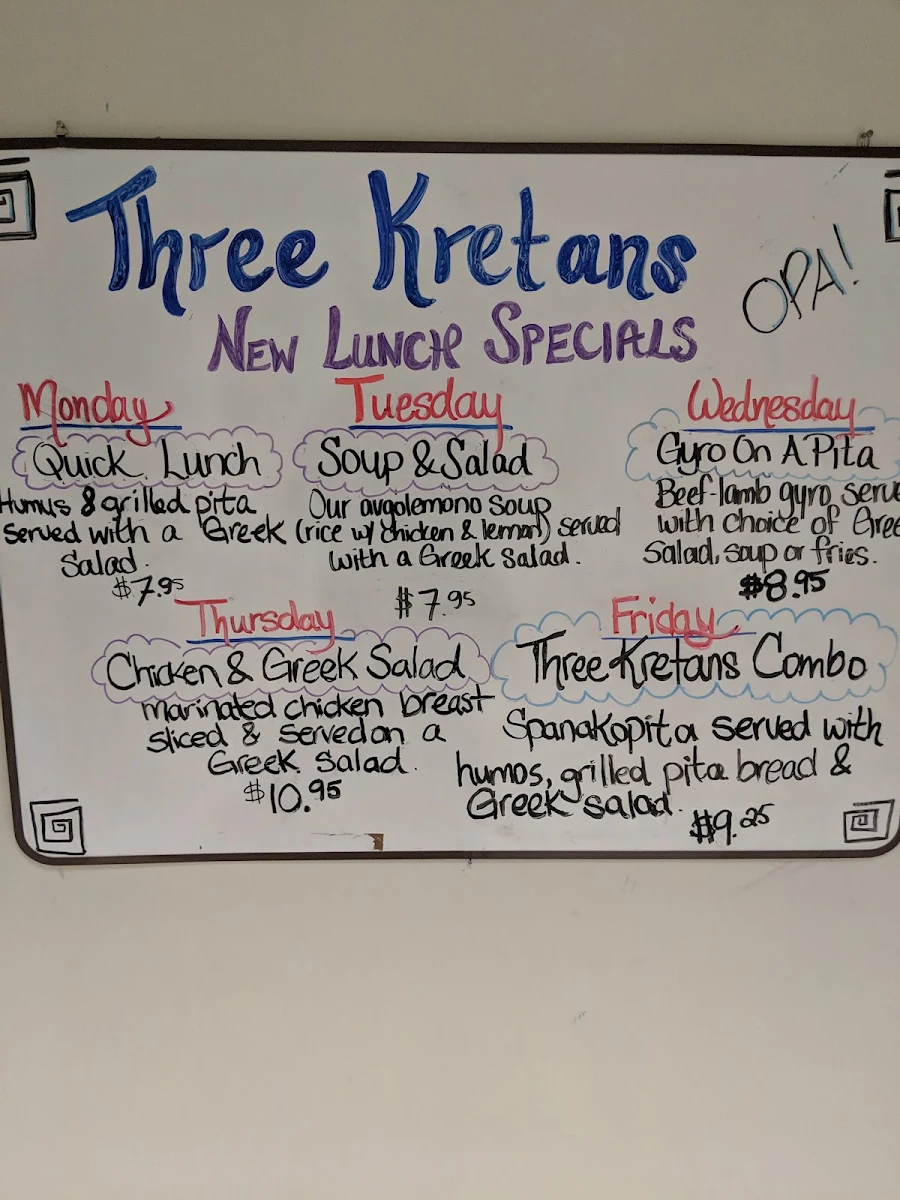 Three Kretans
OPA!
NEW LUNCH SPECIALS
Monday
Quick Lunch
Humus & grilled pita
served with a Greek
Salad.
$7.95
Tuesday
Soup & Salad
Our avgolemono soup
(rice w/ chicken & lemon) served
with a Greek salad.
$7.95
Wednesday
Gyro On A Pita
Beef-lamb gyro serve
with choice of Gree
Salad, soup or fries.
$8.95
Thursday
Chicken & Greek Salad
marinated chicken breast
sliced & served on a
Greek Salad.
$10.95
Friday
Three Kretans Combo
Spanakopita served with
humos, grilled pita bread &
Greek salad.
$9.25